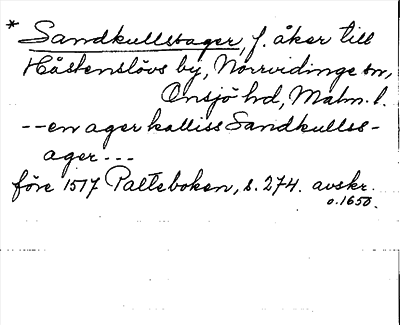 * Sandkullsager, f. åker till
Håstenslövs by, Norrvidinge sn,
Onsjö hd, Malm. l.
-- en ager kalliss Sandkullss-
ager ---
före 1517 Palteboken, s. 274. avskr.
o. 1650.